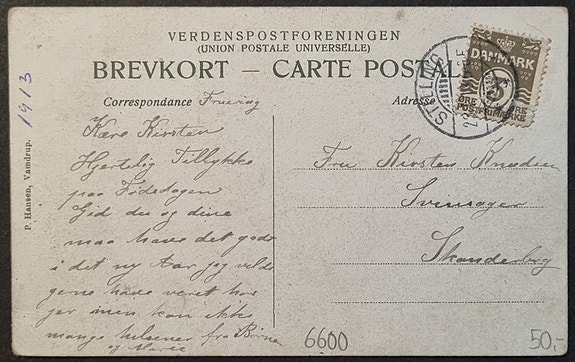 VERDENSPOSTFORENINGEN
(UNION POSTALE UNIVERSELLE)
BREVKORT — CARTE POSTALE
Correspondance Fruering
Adresse
Kære Kirsten
Hjertelig Tillykke
paa Fødedagen
Gid du og dine
maa have det godt
i det ny Aar jeg vilde
gerne have veret hos
jer men kan ikke
mange hilsener fra Børnene
og Marie
Fru Kirsten Knudsen
Svinsager
Skanderborg
DANMARK
3
ØRE ØRE
POSTFRIMÆRKE
STILLING
P. Hansen, Vamdrup.
1913
6600
50,-